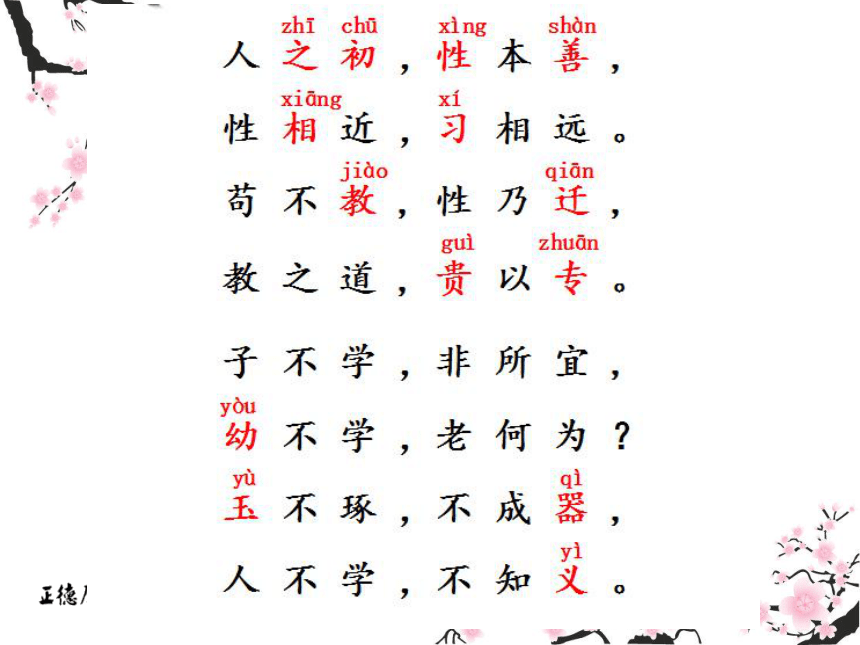 zhī chū xìng shàn
人之初，性本善，
xiāng xí
性相近，习相远。
jiào qiān
苟不教，性乃迁，
guì zhuān
教之道，贵以专。
子不学，非所宜，
yòu
幼不学，老何为？
yù qì
玉不琢，不成器，
yì
人不学，不知义。
正德